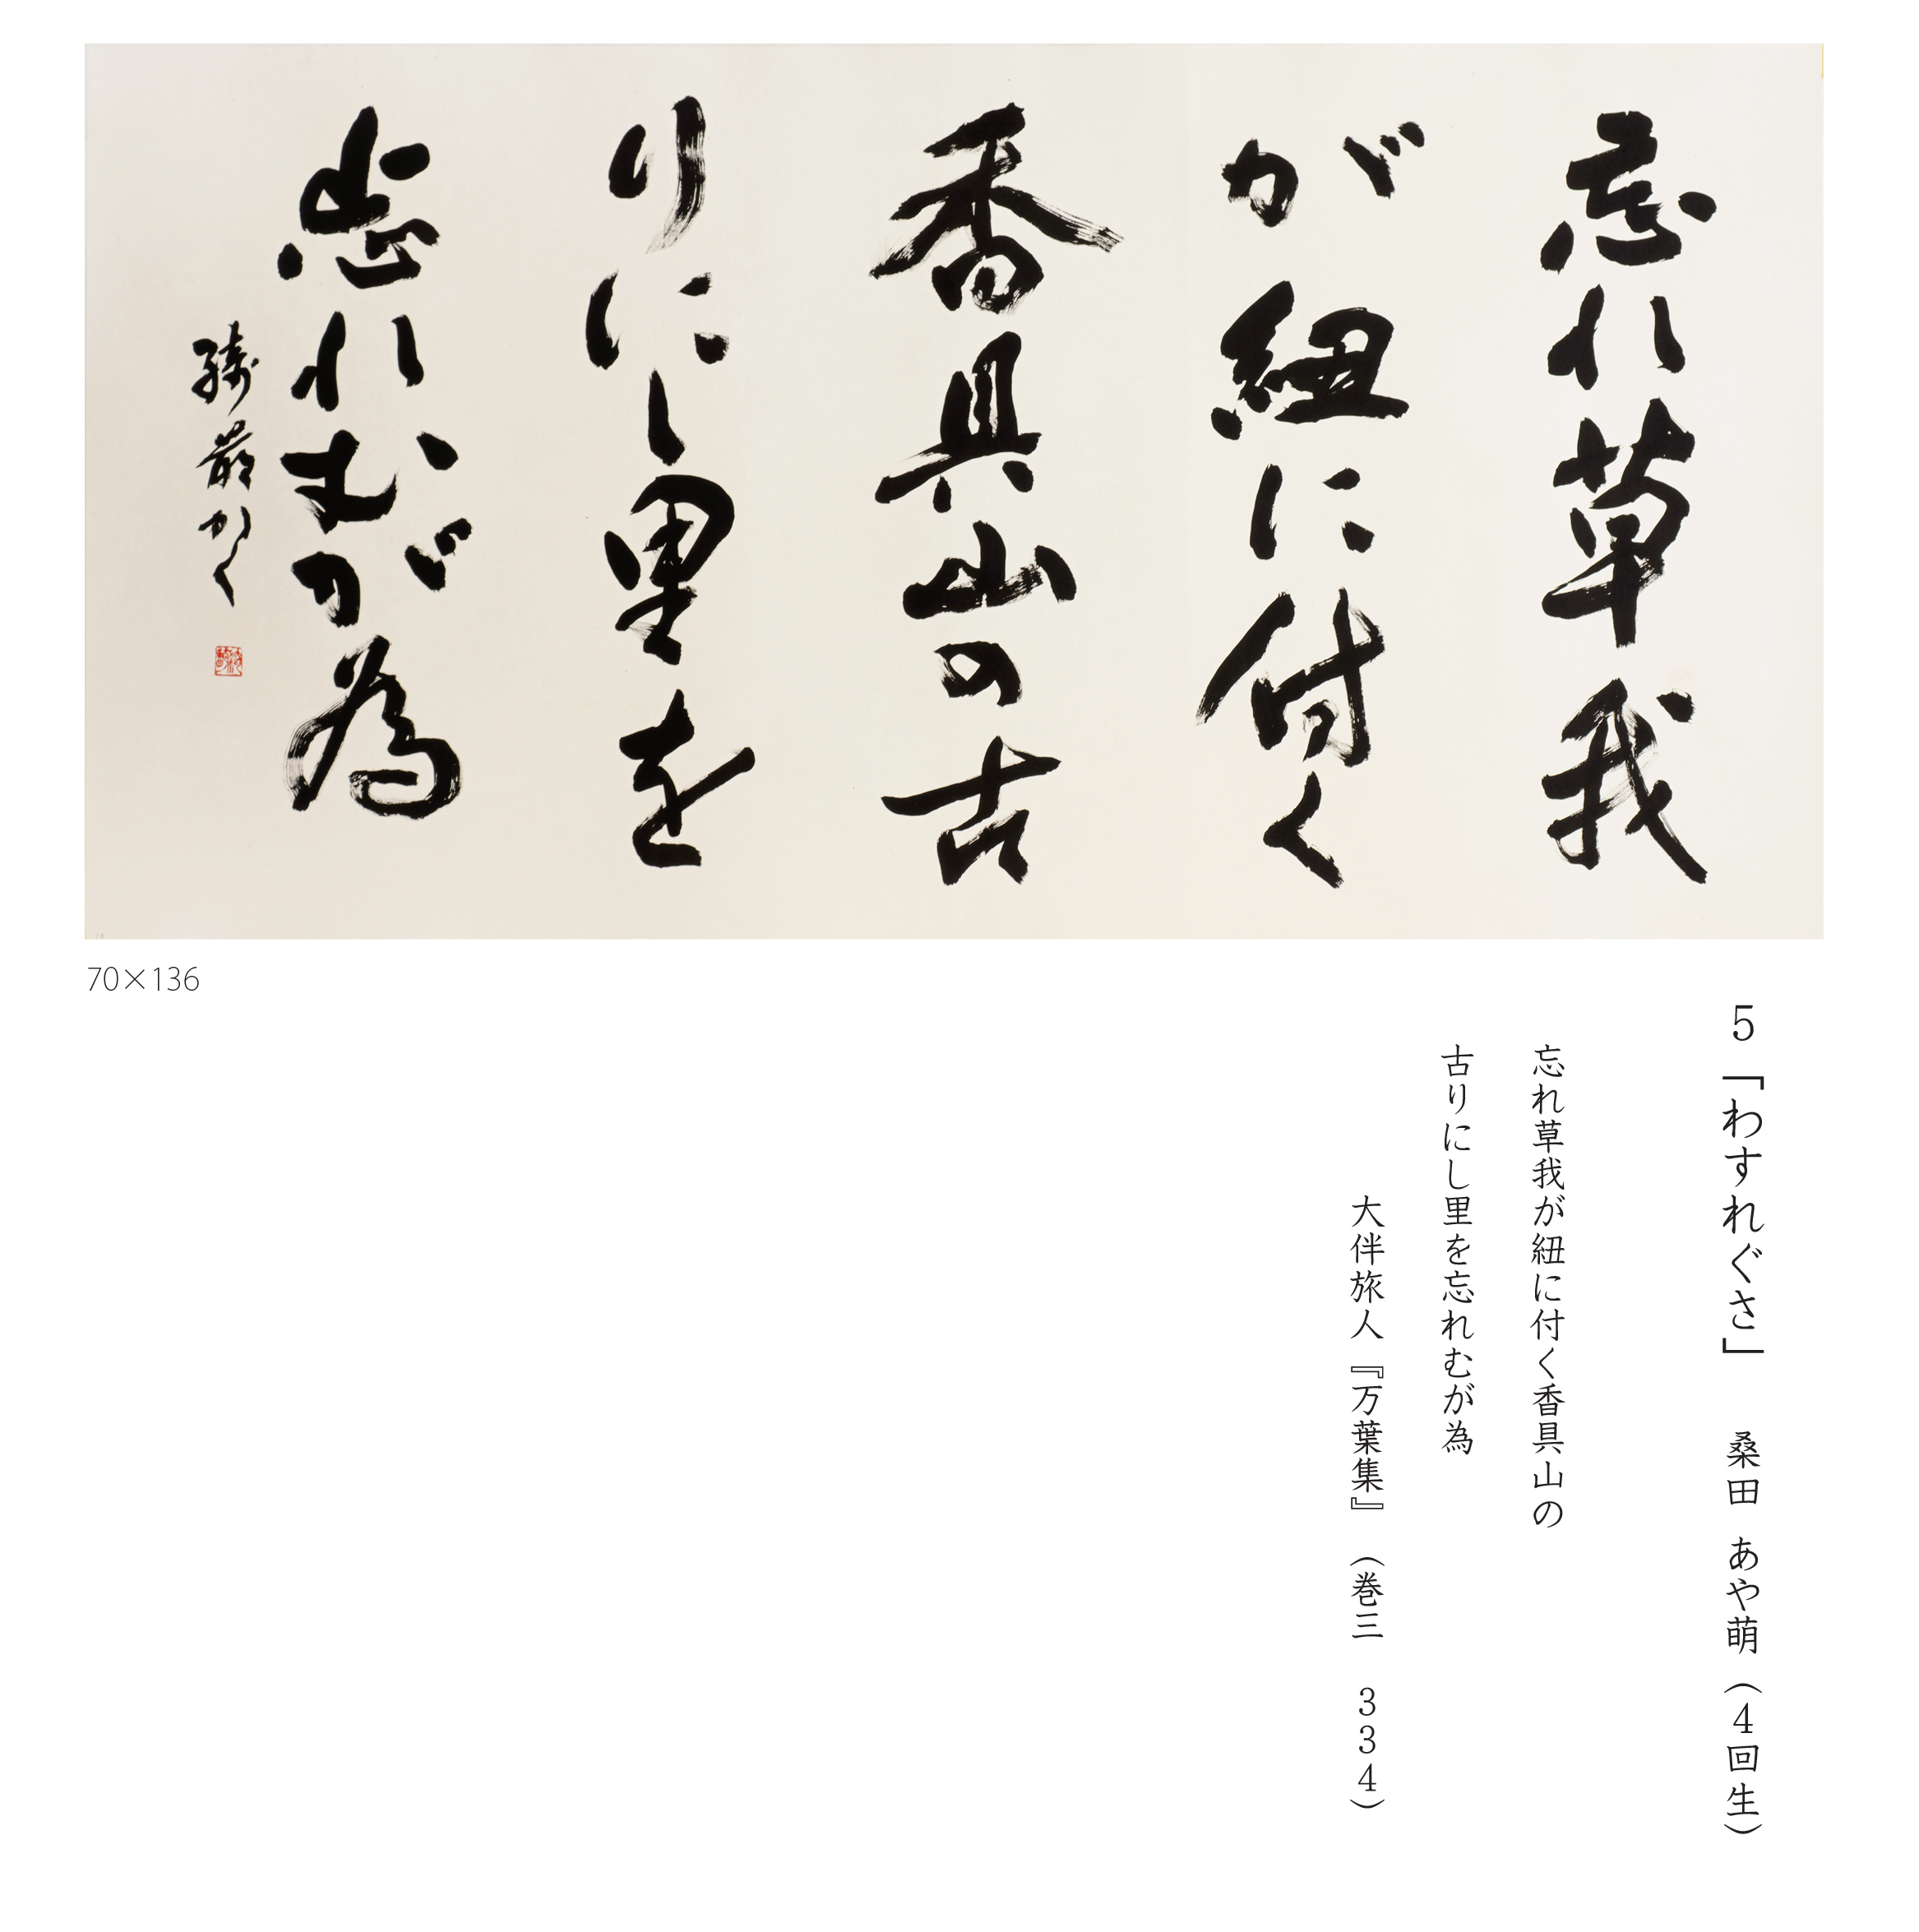 忘れ草我
が紐に付く
香具山の古
りにし里を
忘れむが為
かく
70×136
5「わすれぐさ」 桑田 あや萌(4回生)
忘れ草我が紐に付く香具山の
古りにし里を忘れむが為
大伴旅人『万葉集』(巻三 334)